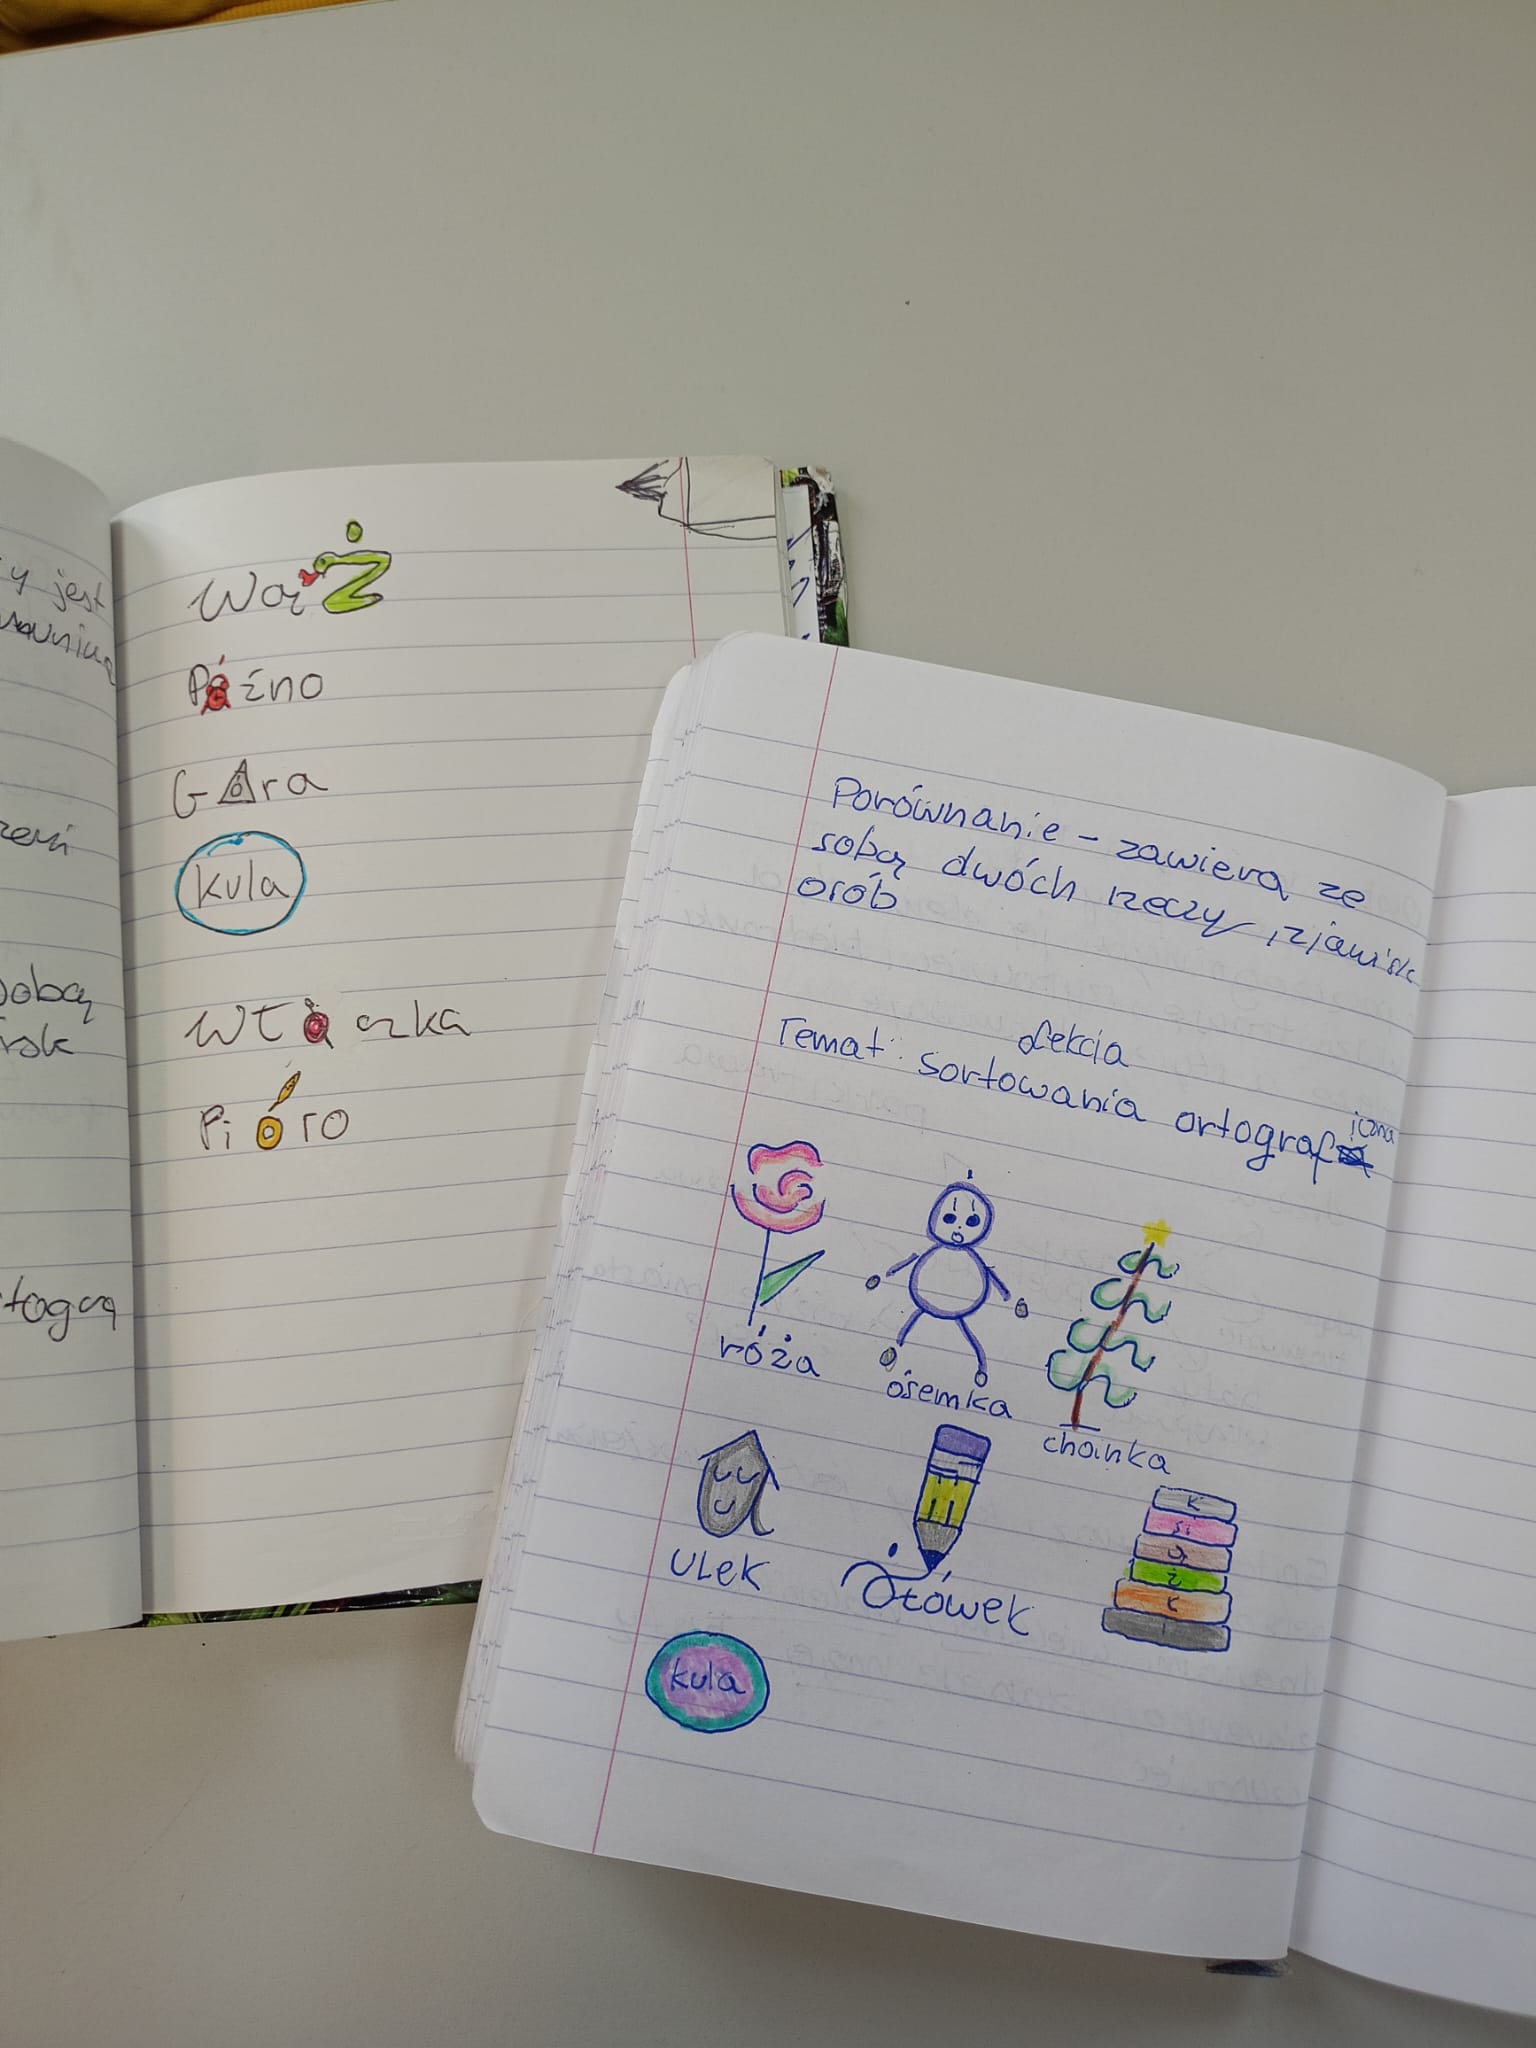 y jest
obą
togrą
Wąż
Późno
Góra
kula
Włóczka
Pióro
Porównanie – zawiera ze
sobą dwóch rzeczy, zjawisk
orób
Lekcia
Temat: Sortowania ortograficzna
róża
ósemka
choinka
ULEK
Ołówek
K
si
ą
ż
k
i
kula